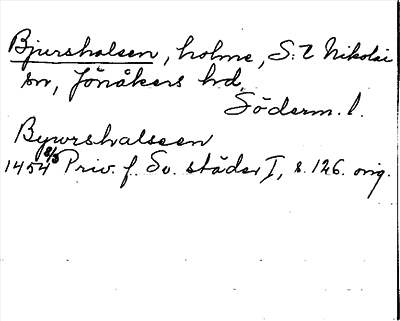 Bjurshalsen, holme, S:t Nikolai
sn, Jönåkers hd,
Söderm. l.
Byurshalseen
1454 8/3 Priv. f. Sv. städer I, s. 126. orig.